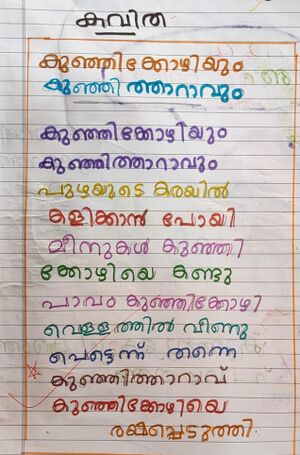 കവിത
കുഞ്ഞിക്കോഴിയും
കുഞ്ഞിത്താറാവും
കുഞ്ഞിക്കോഴിയും
കുഞ്ഞിത്താറാവും
പുഴയുടെ കരയിൽ
കളിക്കാൻ പോയി
മീനുകൾ കുഞ്ഞി
ക്കോഴിയെ കണ്ടു
പാവം കുഞ്ഞിക്കോഴി
വെള്ളത്തിൽ വീണു
പെട്ടെന്ന് തന്നെ
കുഞ്ഞിത്താറാവ്
കുഞ്ഞിക്കോഴിയെ
രക്ഷപ്പെടുത്തി.